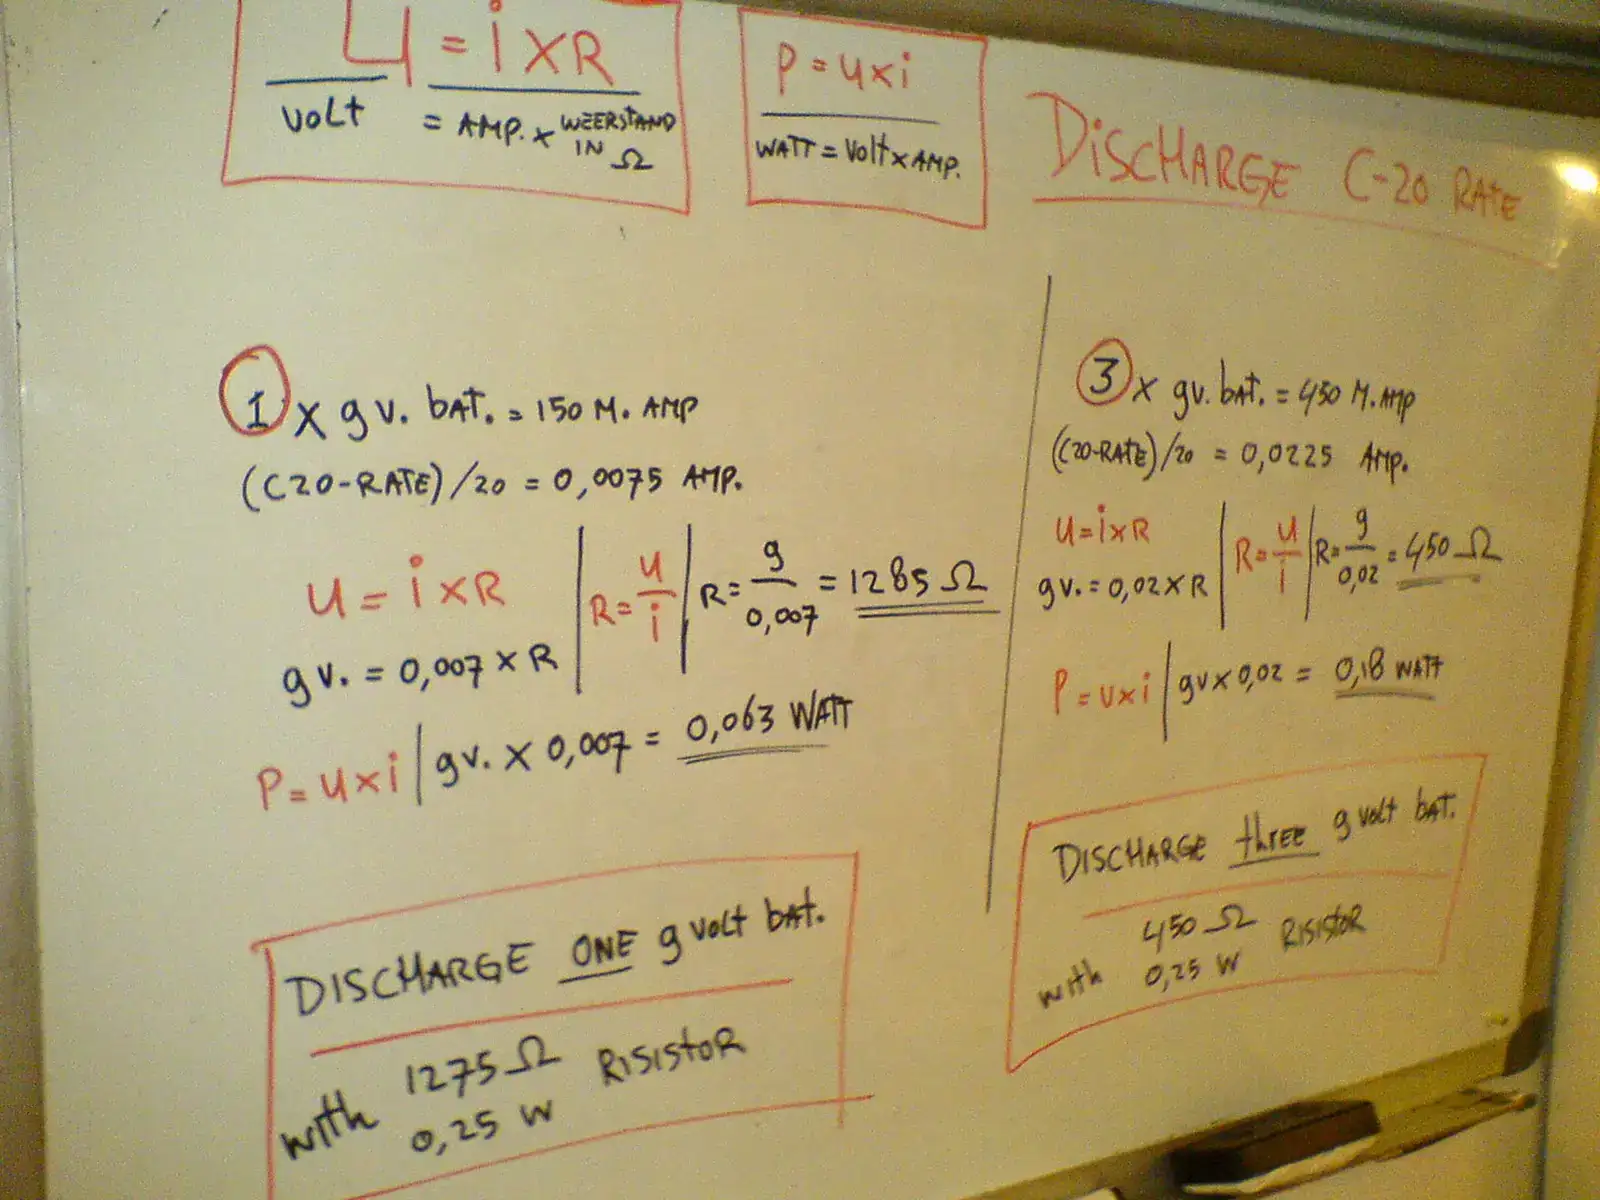 U = i X R
VOLT = AMP. x WEERSTAND IN Ω
P = U x i
WATT = VOLT x AMP.
DISCHARGE C-20 RATE
1 X 9 V. BAT. = 150 M. AMP
(C20-RATE) /20 = 0,0075 AMP.
U = i X R | R = U/i | R = 9/0,007 = 1285 Ω
9 V. = 0,007 X R
P = U x i | 9 V. X 0,007 = 0,063 WATT
DISCHARGE ONE 9 VOLT BAT.
with 1275 Ω RISISTOR
0,25 W
3 X 9 V. BAT. = 450 M. AMP
(C20-RATE) /20 = 0,0225 AMP.
U = i x R | R = U/i | R = 9/0,02 = 450 Ω
9 V. = 0,02 X R
P = U x i | 9 V x 0,02 = 0,18 WATT
DISCHARGE three 9 VOLT BAT.
with 450 Ω RISISTOR
0,25 W